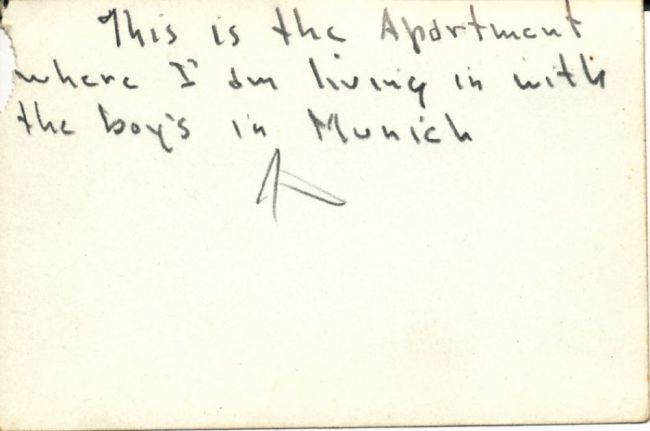 This is the Apartment
where I am living in with
the boy's in Munich